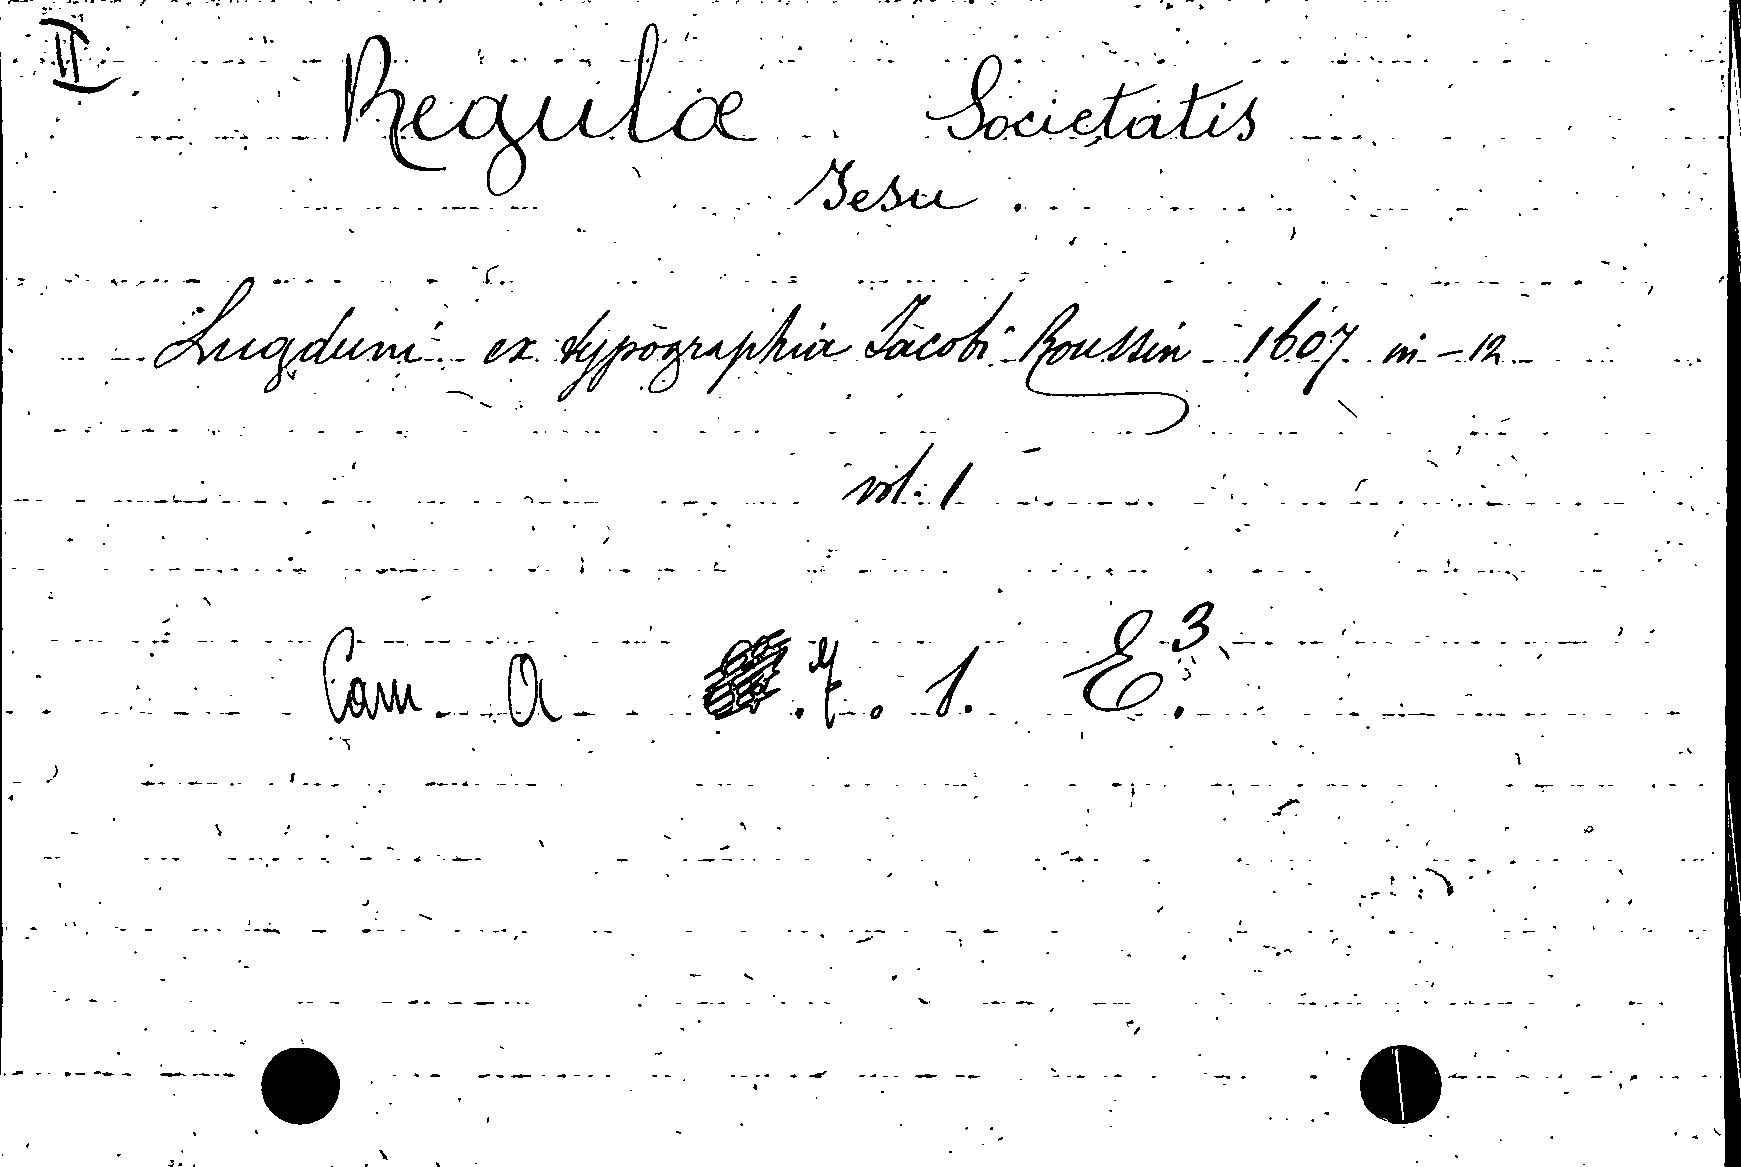 II
Regulæ Societatis
Jesu.
Lugduni ex typographia Jacobi Roussin 1607 in-12
vol. 1
Cam A .7. 1. E.³